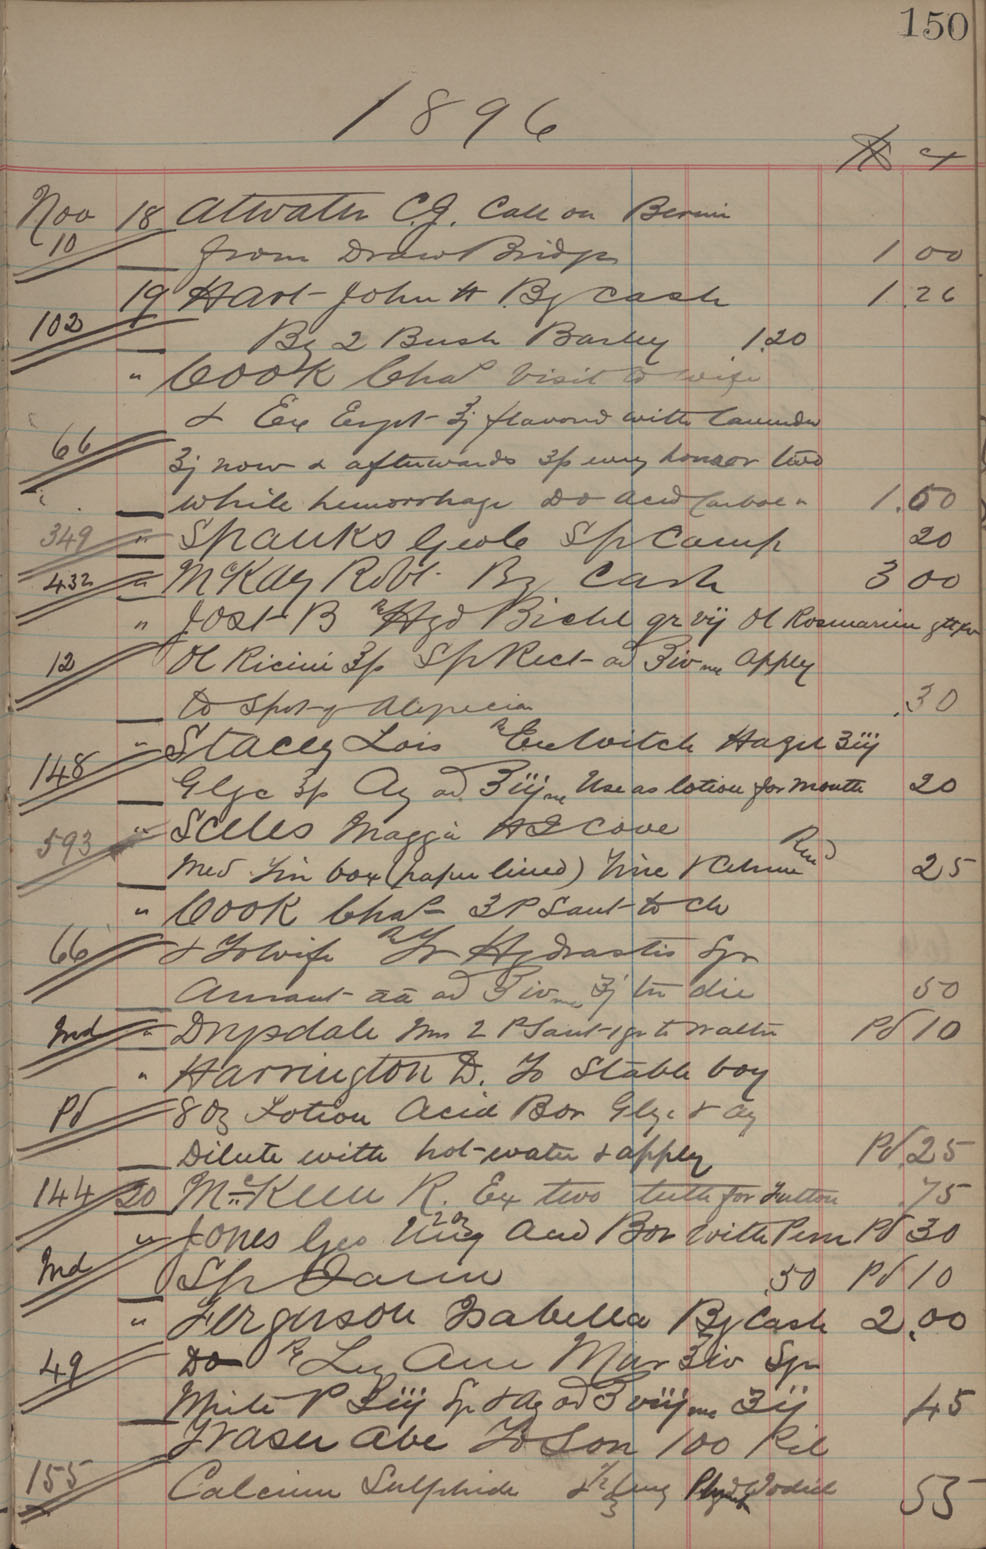 150
1896
$ c
Nov 18 Atwater C.J. Call on Bernie
10 from Draw Bridge 1 00
19 Hart John H By Cash 1.26
102 By 2 Bush Barley 1.20
" Cook Chas visit to wife
& Ex Ergot ʒj flavord with
66 ʒj now & afterwards ʒſs every hour or two
while hemorrhage Do acid Carbol 1.50
349 " Spanks Geo Sp Camp 20
432 " McKay Robt By Cash 3 00
" Jost B ℞ Hyd Bichl gr vij Ol Rosmarin gtt
12 Ol Ricini ʒſs Sp Rect ad ℥iv Apply
to Spot of Alopecia .30
" Stacey Lois ℞ Ex Witch Hazel ʒiij
148 Glyc ʒſs Aq ad ℥iij Use as lotion for mouth 20
593 " Maggie Cove
Med Tin box (paper lined) 25
" Cook Chas 3 P Sant to ch
66 & To wife ℞ Tr Hydrastis Syr
Aurant aa ad ℥iv ʒj ter die 50
Ind " Drysdale Wm 2 P Sant Pd 10
" Harrington D. To Stable boy
Pd 8 oz Lotion Acid Bor Glyc & Aq
Dilute with hot water & apply Pd .25
144 20 McKeen R. Ex two teeth for .75
" Jones Geo 2 oz Ung Acid Bor with Pd 30
Ind Sp .30 Pd 10
" Ferguson Isabella By Cash 2.00
49 Do ℞ Liq Am Mur ʒiv Sp
White P ℥iij Sp & Aq ad ℥viij ʒij 45
Fraser Abe To Son 100 Pil
155 Calcium Sulphide 55